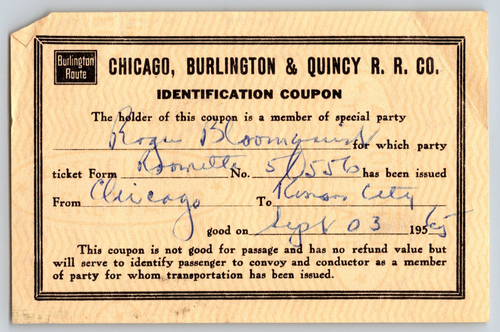 Burlington
Route
CHICAGO, BURLINGTON & QUINCY R. R. CO.
IDENTIFICATION COUPON
The holder of this coupon is a member of special party
Roger Bloomquist for which party
ticket Form Roomette No. 50556 has been issued
From Chicago To Kansas City
good on Sept 03 195 65
This coupon is not good for passage and has no refund value but
will serve to identify passenger to convoy and conductor as a member
of party for whom transportation has been issued.